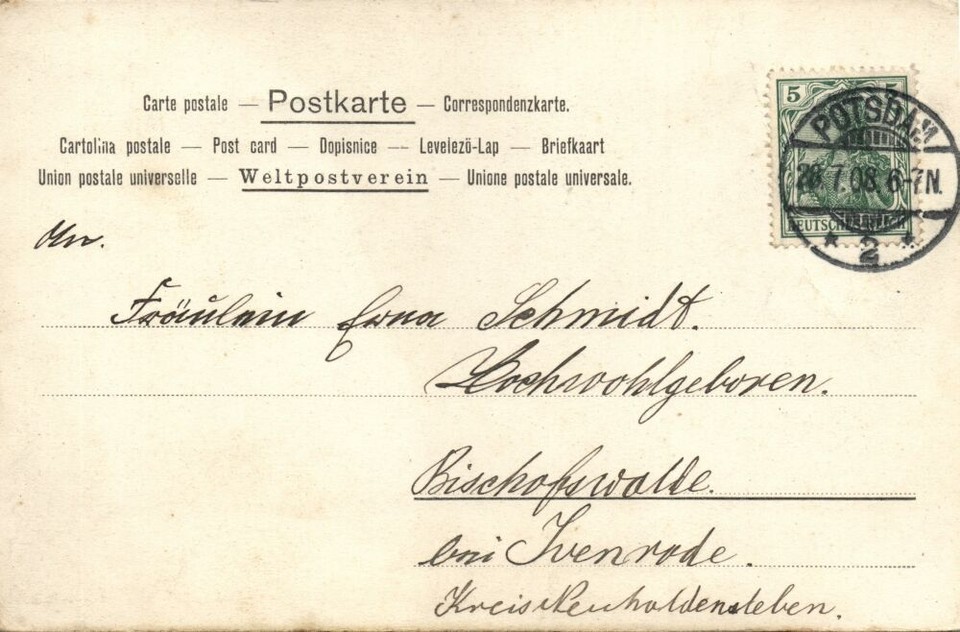 Carte postale — Postkarte — Correspondenzkarte.
Cartolina postale — Post card — Dopisnice — Levelező-Lap — Briefkaart
Union postale universelle — Weltpostverein — Unione postale universale.
5 5
DEUTSCHES REICH
POTSDAM
28.7.08. 6-7N.
* 2 *
An.
Fräulein Erna Schmidt.
Hochwohlgeboren.
Bischofswalde.
bei Ivenrode.
Kreis Neuhaldensleben.